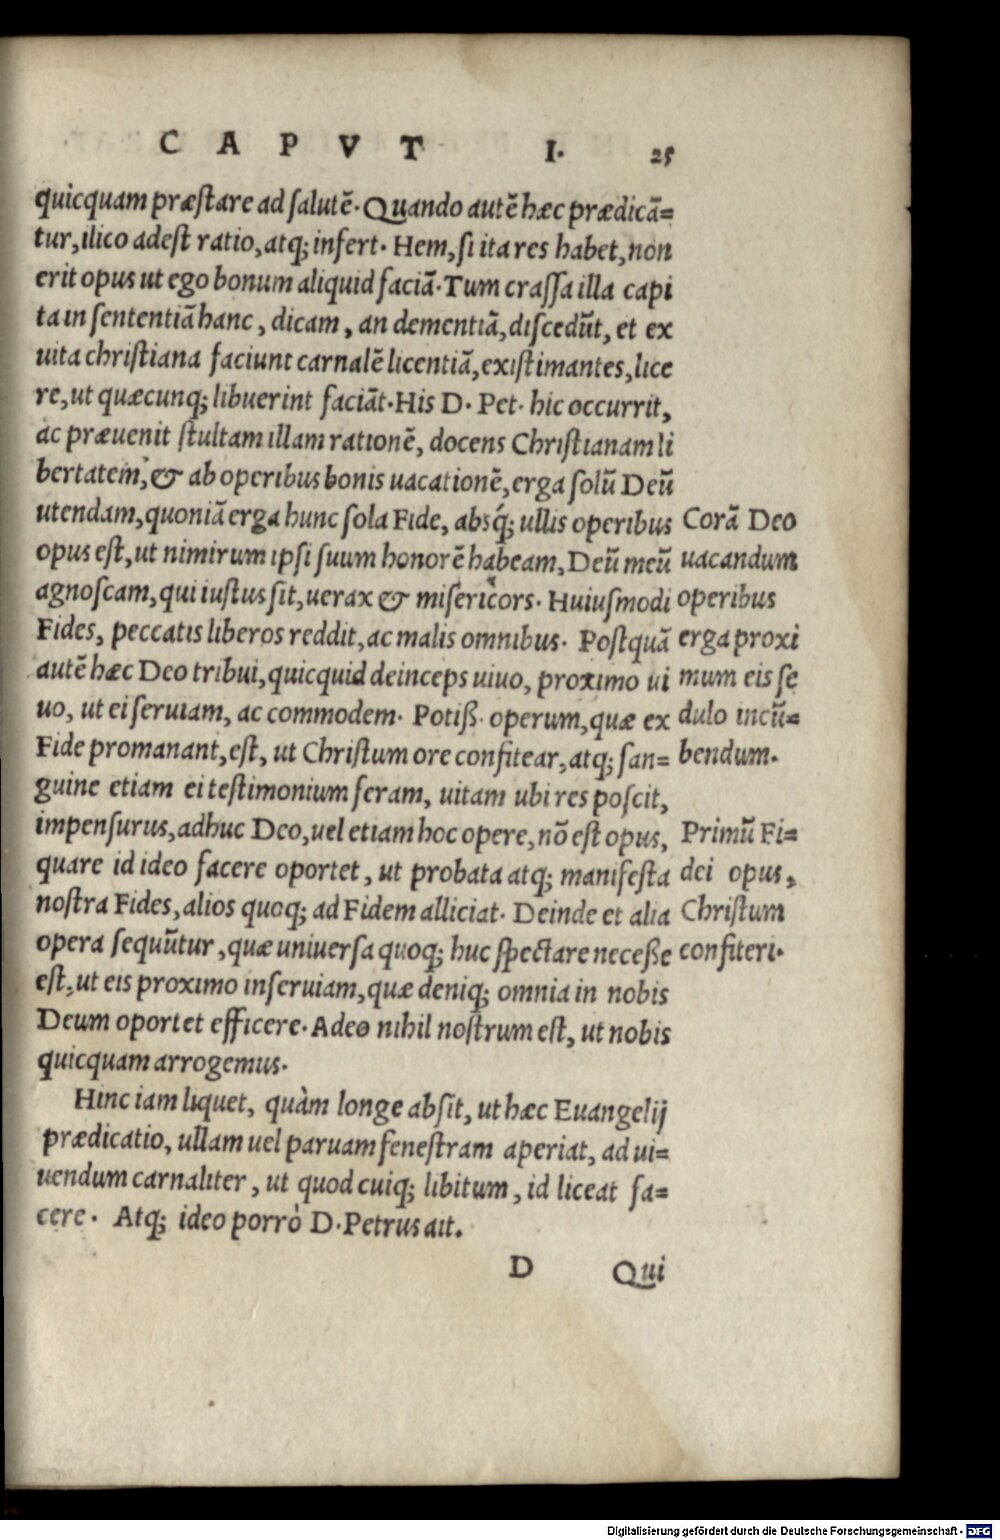 CAPVT I. 25
quicquam præstare ad salutē. Quando autē hæc prædicā=
tur, ilico adest ratio, atq; infert. Hem, si ita res habet, non
erit opus ut ego bonum aliquid faciā. Tum crassa illa capi
ta in sententiā hanc, dicam, an dementiā, discedūt, et ex
uita christiana faciunt carnalē licentiā, existimantes, lice
re, ut quæcunq; libuerint faciāt. His D. Pet. hic occurrit,
ac præuenit stultam illam rationē, docens Christianam li
bertatem, & ab operibus bonis uacationē, erga solū Deū
utendam, quoniā erga hunc sola Fide, absq́; ullis operibus
opus est, ut nimirum ipsi suum honorē habeam, Deū meū
agnoscam, qui iustus sit, uerax & misericors. Huiusmodi
Fides, peccatis liberos reddit, ac malis omnibus. Postquā
autē hæc Deo tribui, quicquid deinceps uiuo, proximo ui
uo, ut ei seruiam, ac commodem. Potiß. operum, quæ ex
Fide promanant, est, ut Christum ore confitear, atq; san=
guine etiam ei testimonium feram, uitam ubi res poscit,
impensurus, adhuc Deo, uel etiam hoc opere, nō est opus,
quare id ideo facere oportet, ut probata atq; manifesta
nostra Fides, alios quoq; ad Fidem alliciat. Deinde et alia
opera sequūtur, quæ uniuersa quoq; huc spectare neceße
est, ut eis proximo inseruiam, quæ deniq; omnia in nobis
Deum oportet efficere. Adeo nihil nostrum est, ut nobis
quicquam arrogemus.
Hinc iam liquet, quàm longe absit, ut hæc Euangelij
prædicatio, ullam uel paruam fenestram aperiat, ad ui=
uendum carnaliter, ut quod cuiq; libitum, id liceat fa=
cere. Atq; ideo porrò D. Petrus ait.
D Qui
Corā Deo
uacandum
operibus
erga proxi
mum eis se
dulo incū=
bendum.
Primū Fi=
dei opus,
Christum
confiteri.
Digitalisierung gefördert durch die Deutsche Forschungsgemeinschaft - DFG